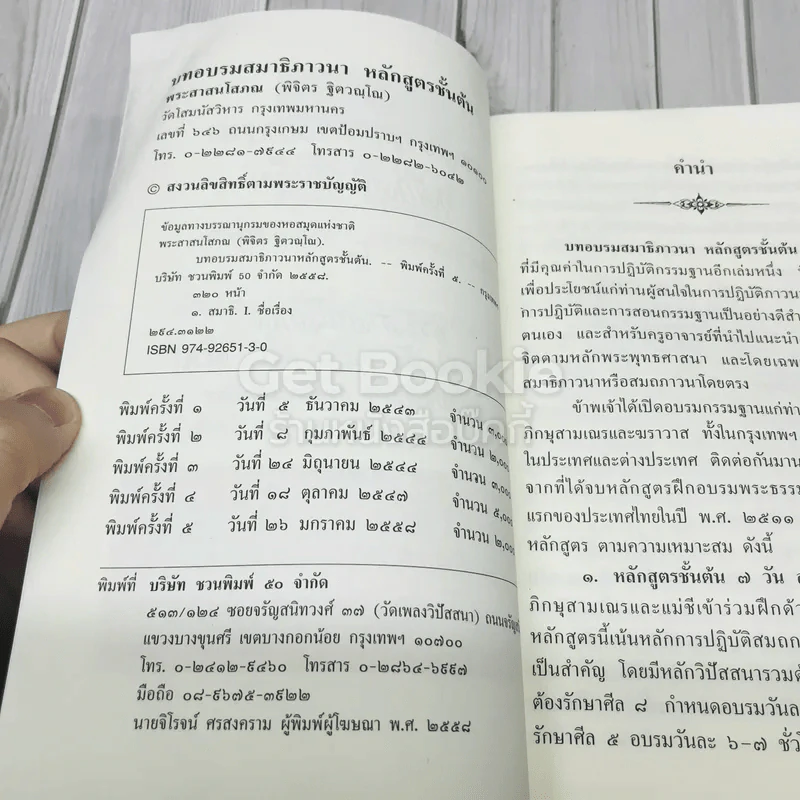 บทอบรมสมาธิภาวนา หลักสูตรชั้นต้น
พระสาสนโสภณ (พิจิตร ฐิตวณฺโณ)
วัดโสมนัสวิหาร กรุงเทพมหานคร
เลขที่ ๖๔๖ ถนนกรุงเกษม เขตป้อมปราบฯ กรุงเทพฯ ๑๐๑๐๐
โทร. ๐-๒๒๘๑-๗๙๔๔ โทรสาร ๐-๒๒๘๒-๖๐๔๒
© สงวนลิขสิทธิ์ตามพระราชบัญญัติ
ข้อมูลทางบรรณานุกรมของหอสมุดแห่งชาติ
พระสาสนโสภณ (พิจิตร ฐิตวณฺโณ).
บทอบรมสมาธิภาวนาหลักสูตรชั้นต้น. -- พิมพ์ครั้งที่ ๕. -- กรุงเทพฯ
บริษัท ชวนพิมพ์ 50 จำกัด ๒๕๕๘.
๓๒๐ หน้า
๑. สมาธิ. I. ชื่อเรื่อง
๒๙๔.๓๑๒๒
ISBN 974-92651-3-0
พิมพ์ครั้งที่ ๑ วันที่ ๕ ธันวาคม ๒๕๔๓ จำนวน ๓,๐๐
พิมพ์ครั้งที่ ๒ วันที่ ๘ กุมภาพันธ์ ๒๕๔๔ จำนวน ๒,๐๐๐
พิมพ์ครั้งที่ ๓ วันที่ ๒๔ มิถุนายน ๒๕๔๔ จำนวน ๓,๐๐๐
พิมพ์ครั้งที่ ๔ วันที่ ๑๘ ตุลาคม ๒๕๔๗ จำนวน ๕,๐๐๐
พิมพ์ครั้งที่ ๕ วันที่ ๒๖ มกราคม ๒๕๕๘ จำนวน ๒,๐๐
พิมพ์ที่ บริษัท ชวนพิมพ์ ๕๐ จำกัด
๕๑๓/๑๒๔ ซอยจรัญสนิทวงศ์ ๓๗ (วัดเพลงวิปัสสนา) ถนนจรัญ
แขวงบางขุนศรี เขตบางกอกน้อย กรุงเทพฯ ๑๐๗๐๐
โทร. ๐-๒๔๑๒-๙๔๖๐ โทรสาร ๐-๒๘๖๔-๖๙๙๗
มือถือ ๐๘-๙๖๗๕-๓๙๒๒
นายจิโรจน์ ศรสงคราม ผู้พิมพ์ผู้โฆษณา พ.ศ. ๒๕๕๘
คำนำ
บทอบรมสมาธิภาวนา หลักสูตรชั้นต้น
ที่มีคุณค่าในการปฏิบัติกรรมฐานอีกเล่มหนึ่ง
เพื่อประโยชน์แก่ท่านผู้สนใจในการปฏิบัติภาวนา
การปฏิบัติและการสอนกรรมฐานเป็นอย่างดีสำ
ตนเอง และสำหรับครูอาจารย์ที่นำไปแนะนำ
จิตตามหลักพระพุทธศาสนา และโดยเฉพ
สมาธิภาวนาหรือสมถภาวนาโดยตรง
ข้าพเจ้าได้เปิดอบรมกรรมฐานแก่ท่า
ภิกษุสามเณรและฆราวาส ทั้งในกรุงเทพฯ
ในประเทศและต่างประเทศ ติดต่อกันมาน
จากที่ได้จบหลักสูตรฝึกอบรมพระธรรม
แรกของประเทศไทยในปี พ.ศ. ๒๕๑๑
หลักสูตร ตามความเหมาะสม ดังนี้
๑. หลักสูตรชั้นต้น ๗ วัน
ภิกษุสามเณรและแม่ชีเข้าร่วมฝึกด้ว
หลักสูตรนี้เน้นหลักการปฏิบัติสมถก
เป็นสำคัญ โดยมีหลักวิปัสสนารวมด้
ต้องรักษาศีล ๘ กำหนดอบรมวันล
รักษาศีล ๕ อบรมวันละ ๖-๗ ชั่วโ
Get Bookie
ร้านหนังสือบุ๊คกี้